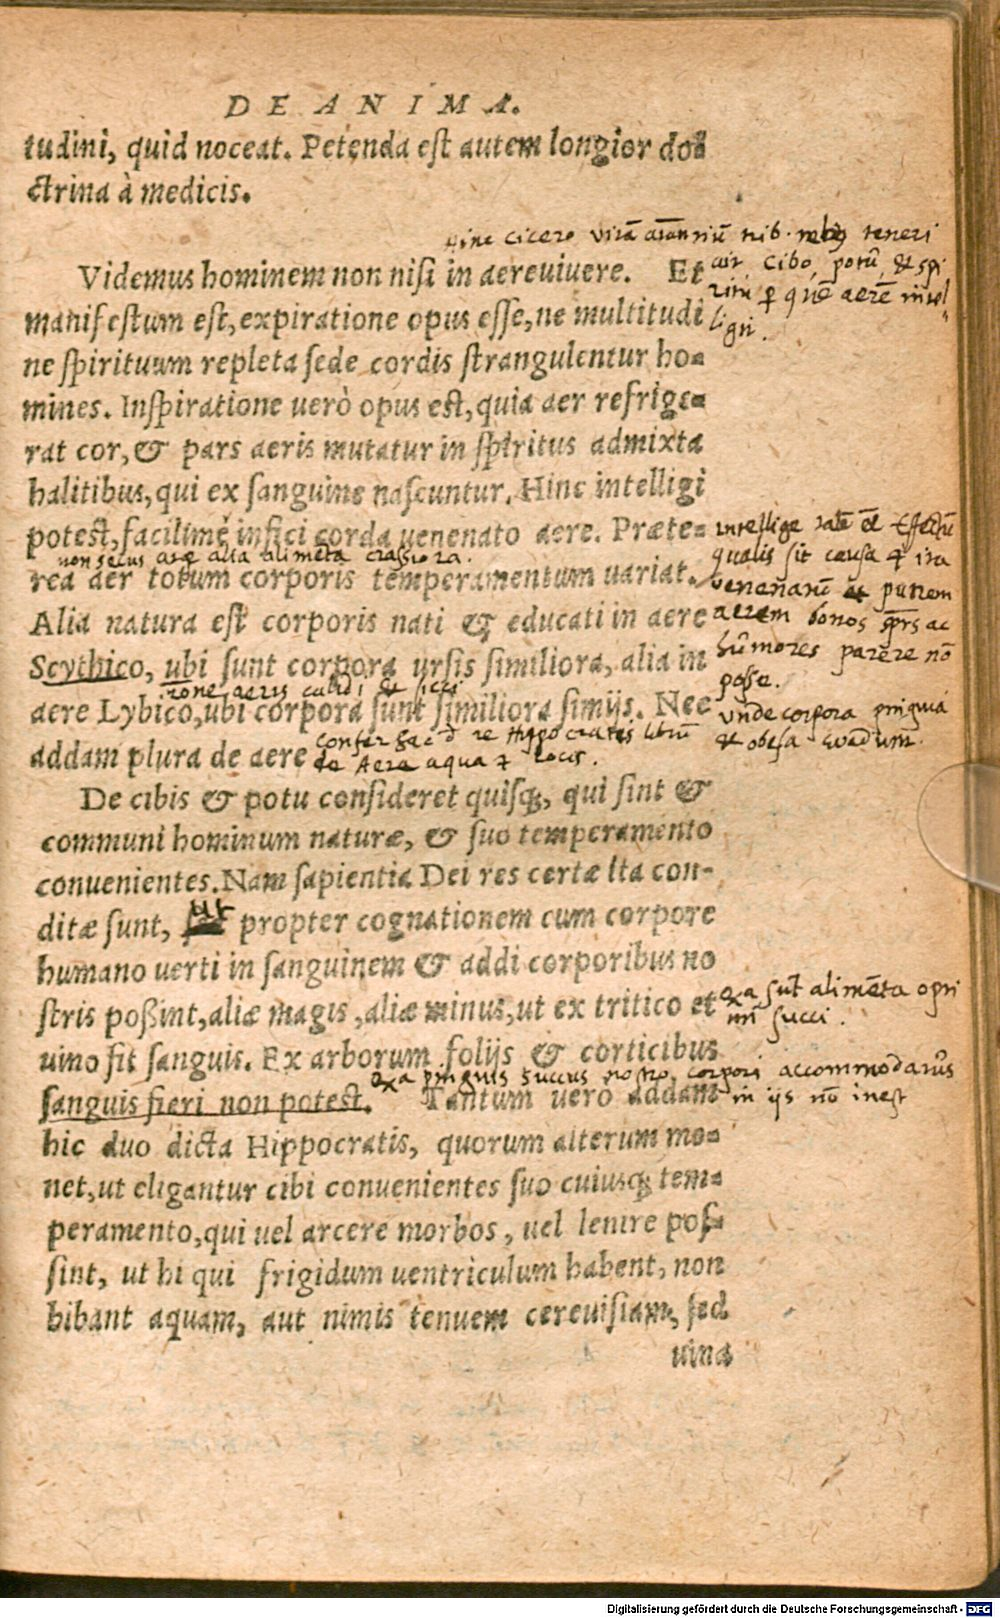 DE ANIMA.
tudini, quid noceat. Petenda eſt autem longior do⸗
ctrina à medicis.
Hinc Cicero vitā animantiū trib. rebꝯ teneri
ait, Cibo, potū, & ſpi
ritu ꝑ quē aerē
Videmus hominem non niſi in aere uiuere. Et
manifeſtum eſt, expiratione opus eſſe, ne multitudi
ne ſpirituum repleta ſede cordis ſtrangulentur ho⸗
mines. Inſpiratione uerò opus eſt, quia aer refrige⸗
rat cor, & pars aeris mutatur in ſpiritus admixta
halitibus, qui ex ſanguine naſcuntur. Hinc intelligi
poteſt, facilimè infici corda uenenato aere. Præte⸗
non secus atque alia alimēta crassiora.
rea aer totum corporis temperamentum uariat.
intellige effectū
qualis sit causa
venenatū et putrem
aerem bonos spūs ac
hūmores parere nō
posse.
Alia natura eſt corporis nati & educati in aere
Scythico, ubi ſunt corpora urſis ſimiliora, alia in
aeris calidi et sicci
aere Lybico, ubi corpora ſunt ſimiliora ſimijs. Nec
vnde corpora pinguia
& obesa evadunt.
addam plura de aere
confer hac d re Hippocratis librū
de Aere aqua et locis.
De cibis & potu conſideret quiſqꝫ, qui ſint &
communi hominum naturæ, & ſuo temperamento
conuenientes. Nam ſapientia Dei res certæ Ita con-
ditæ ſunt, ut propter cognationem cum corpore
humano uerti in ſanguinem & addi corporibus no
ſtris poßint, aliæ magis, aliæ minus, ut ex tritico et
qa sūt alimēta opti
mi succi.
uino fit ſanguis. Ex arborum folijs & corticibus
qa pinguis succus nostro corpori accommodatus
in ijs nō inest
ſanguis fieri non poteſt. Tantum uero addam
hic duo dicta Hippocratis, quorum alterum mo⸗
net, ut eligantur cibi conuenientes ſuo cuiuſqꝫ tem⸗
peramento, qui uel arcere morbos, uel lenire poſ⸗
ſint, ut hi qui frigidum uentriculum habent, non
bibant aquam, aut nimis tenuem cereuiſiam, ſed
uina
Digitalisierung gefördert durch die Deutsche Forschungsgemeinschaft - DFG